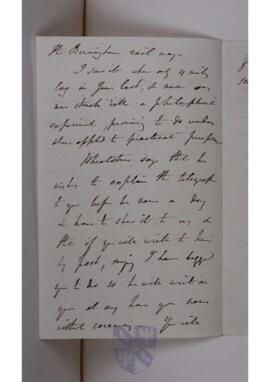 the Birmingham rail way.
I saw it when only 4 miles
long in June last, & never was
more struck with a philosophical
experiment, promising to do wonders
when applied to practical purposes.
Wheatstone says that he
wishes to explain the telegraph
to you before he names a day
& hour to shew it to us, &
that if you will write to him
by post, saying I have begged
you to do so he will wait on
you at any hour you name
without ceremony. You will